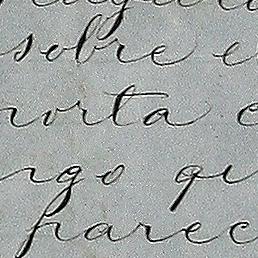 sobre e
norta e
ngo qu
parec